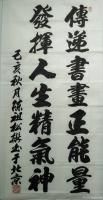 傳遞書畫正能量
發揮人生精氣神
己亥秋月陳祖松與书于北京